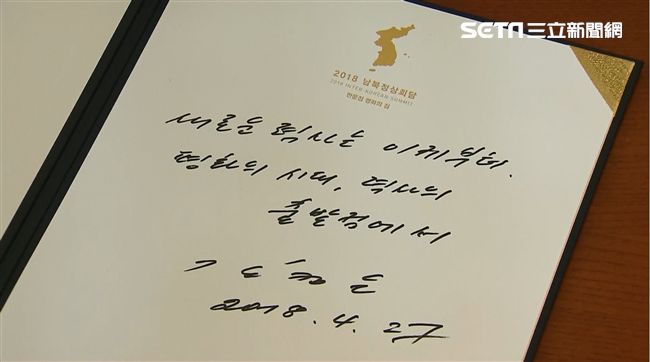 SETN 三立新聞網
2018 남북정상회담
2018 INTER-KOREAN SUMMIT
판문점 평화의 집
새로운 력사는 이제부터.
평화의 시대, 력사의
출발점에서
김정은
2018. 4. 27